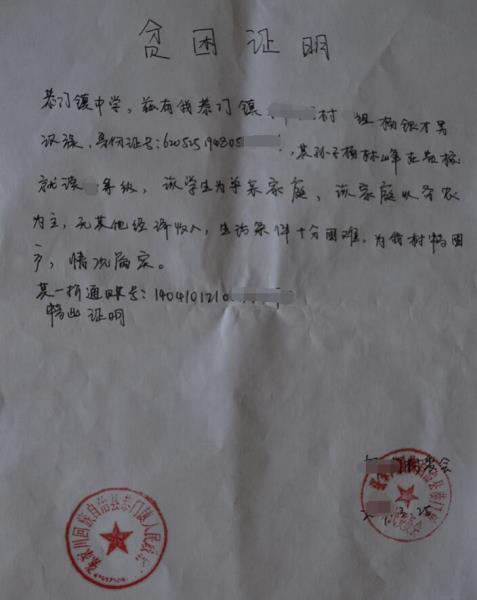 贫困证明
恭门镇中学，兹有我恭门镇 村 组杨银才男
汉族，身份证号：620525194805 ，其孙子杨林峰在贵校
就读 年级，该学生为单亲家庭，该家庭以务农
为主，无其他经济收入，生活条件十分困难，为我村特困
户，情况属实。
其一折通账号：140401210
特此证明
村委会
张家川回族自治县恭门镇人民政府